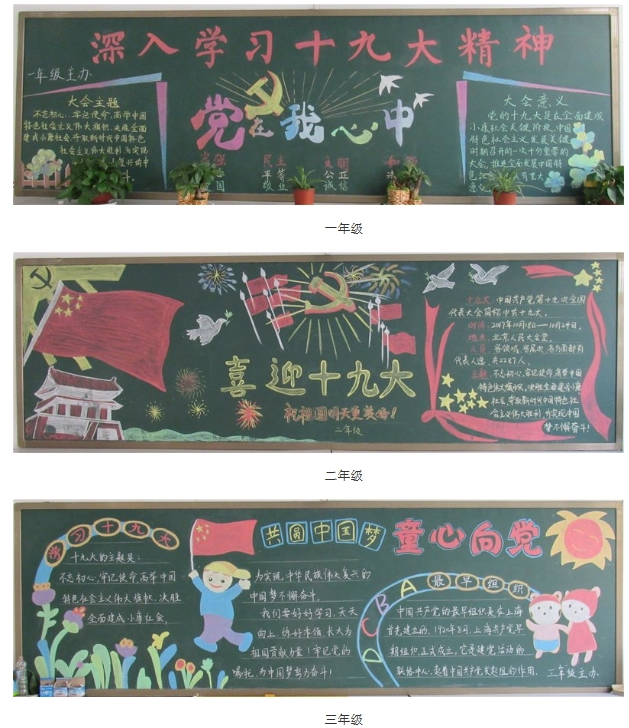 深入学习十九大精神
一年级主办
大会主题
不忘初心,牢记使命,高举中国
特色社会主义伟大旗帜,决胜全面
党在我心中
富强 民主 文明 和谐
平等 公正
敬业 诚信
大会意义
党的十九大是在全面建成
小康社会关键阶段、中国
特色社会主义发展关键
时期召开的一次十分重要的
大会,
一年级
喜迎十九大
祝祖国明天更美好!
二年级
十九大:中国共产党第十九次全国
代表大会简称中共十九大。
时间:2017年10月18日——10月24日。
地点:北京人民大会堂。
代表人选,共2287人。
主题:不忘初心,牢记使命,高举中国
特色伟大旗帜,决胜全面建成小康
社会,夺取新时代中国特色社
会主义伟大胜利,为实现中国
梦不懈奋斗!
二年级
学习十九大
十九大的主题是:
不忘初心,牢记使命,高举中国
特色社会主义伟大旗帜,决胜
全面建成小康社会,
共圆中国梦
为实现中华民族伟大复兴的
中国梦不懈奋斗。
我们要好好学习,天天
向上,作好准备,长大为
祖国贡献力量!牢记党的
嘱托,为中国梦努力奋斗!
童心向党
ABCD
最早组织
中国共产党的最早组织是在上海
首先建立的,1920年8月,上海共产党早
期组织正式成立,它是建党活动的
联络中心,起着中国共产党发起组的作用。
三年级主办
三年级